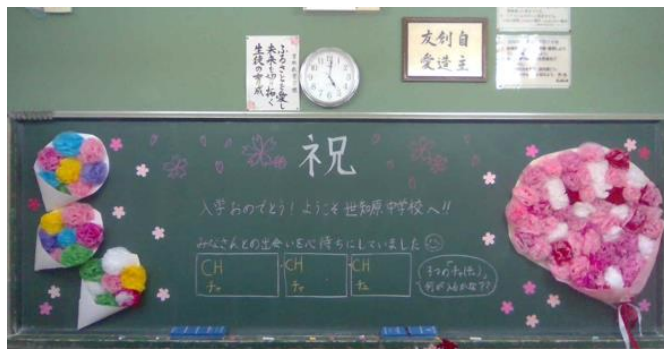 ふるさとを愛し
未来を切り拓く
生徒の育成
自主
創造
友愛
祝
入学おめでとう！ようこそ世知原中学校へ!!
みなさんとの出会いを心待ちにしていました
CH CH CH
チャ チャ チェ
3つの「チェ(ch)」
何が入るかな??